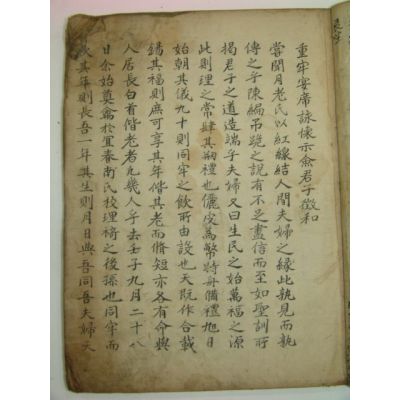 重牢宴席詠懷示僉君子徵和
嘗聞月老氏以紅線結人間夫婦之緣此孰見而孰
傳之乎陳編吊詭之說有不足盡信而至如聖訓所
揭君子之道造端乎夫婦又曰生民之始萬福之源
此則理之常肆其嗣禮也儷皮爲幣特舟備禮旭日
始朝其儀九十則同牢之飮所由設也天旣作合載
錫其福則庶可享其年偕其老而脩短亦各有命與
人居長白首偕老者尤幾人乎去壬子九月二十八
日余始奠鴈於宜春南氏校理椅之後孫也同牢而
其年則長吾一年其生則月日與吾同吾夫婦天